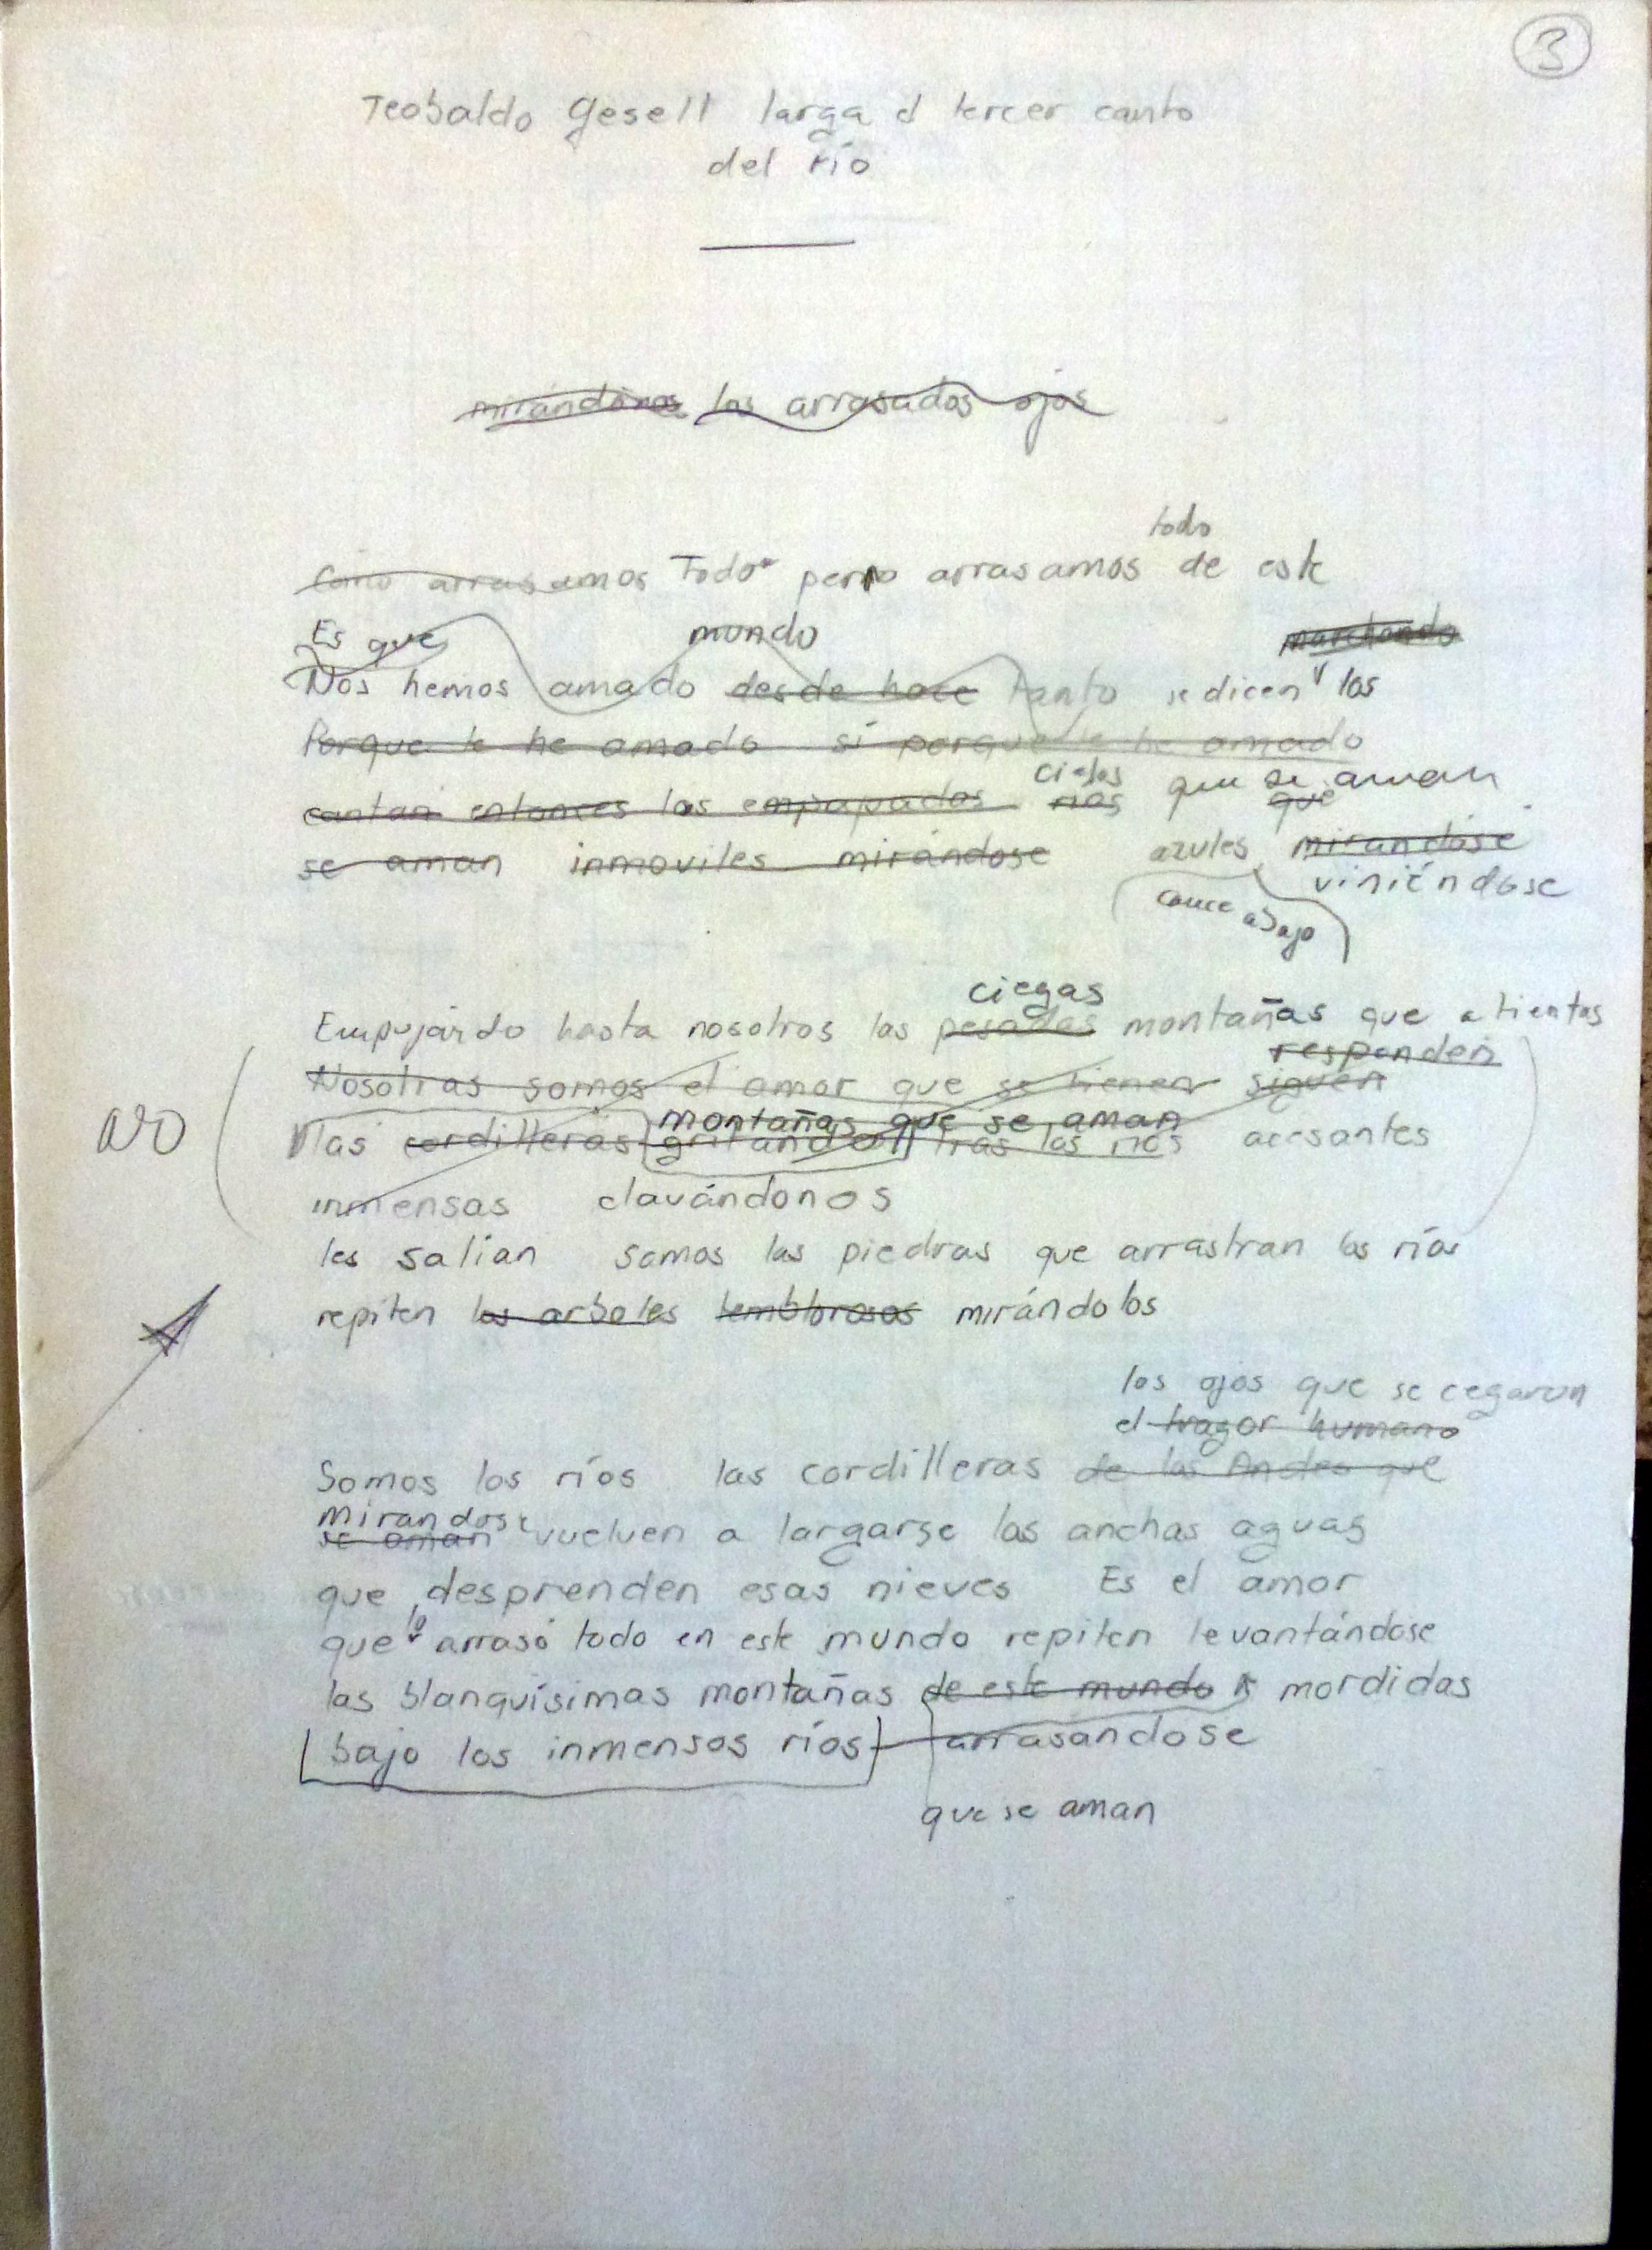 3
Teobaldo Gesell larga el tercer canto
del río
mirándonos los arrasados ojos
todo
Como arrasamos Todo perno arrasamos de este
Es que mundo marchando
Nos hemos amado desde hace Tanto se dicen los
Porque le he amado si porque le he amado
cielos que se aman
cantan entonces los empapados ríos que
se aman inmoviles mirándose azules mirandose
viniéndose
cauce abajo
ciegas
Empujando hasta nosotros las pesadas montañas que a tientas
responden
Nosotras somos el amor que se tienen siguen
montañas que se aman
NO las cordilleras gritando tras los ríos acesantes
inmensas clavándonos
les salían somos las piedras que arrastran los ríos
repiten los arboles temblorosos mirándolos
los ojos que se cegaron
el fragor humano
Somos los ríos las cordilleras de los Andes que
mirandose
se aman vuelven a largarse las anchas aguas
que desprenden esas nieves Es el amor
lo
que arrasó todo en este mundo repiten levantándose
las blanquísimas montañas de este mundo mordidas
bajo los inmensos ríos arrasandose
que se aman